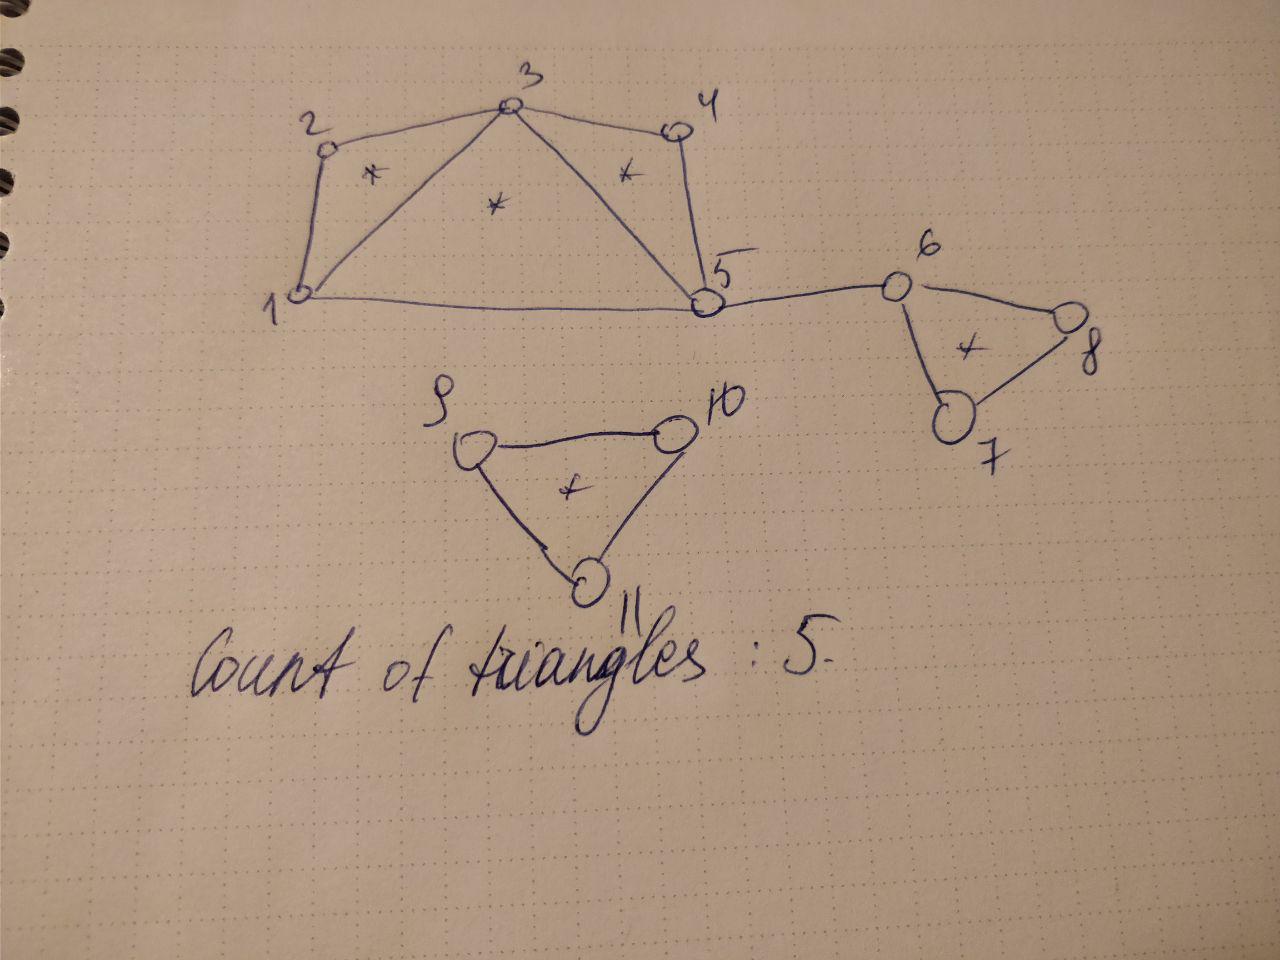 3
4
2
1
5
6
8
7
9
10
11
Count of triangles : 5.